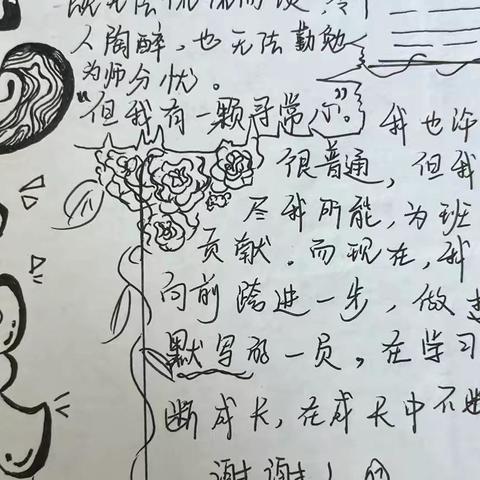 既无法侃侃而谈，令
人陶醉，也无法勤勉
为师分忧。
“但我有一颗寻常心”。我也许
很普通，但我
尽我所能，为班
贡献。而现在，我
向前跨进一步，做
默写的一员，在学习
断成长，在成长中不断
谢谢！